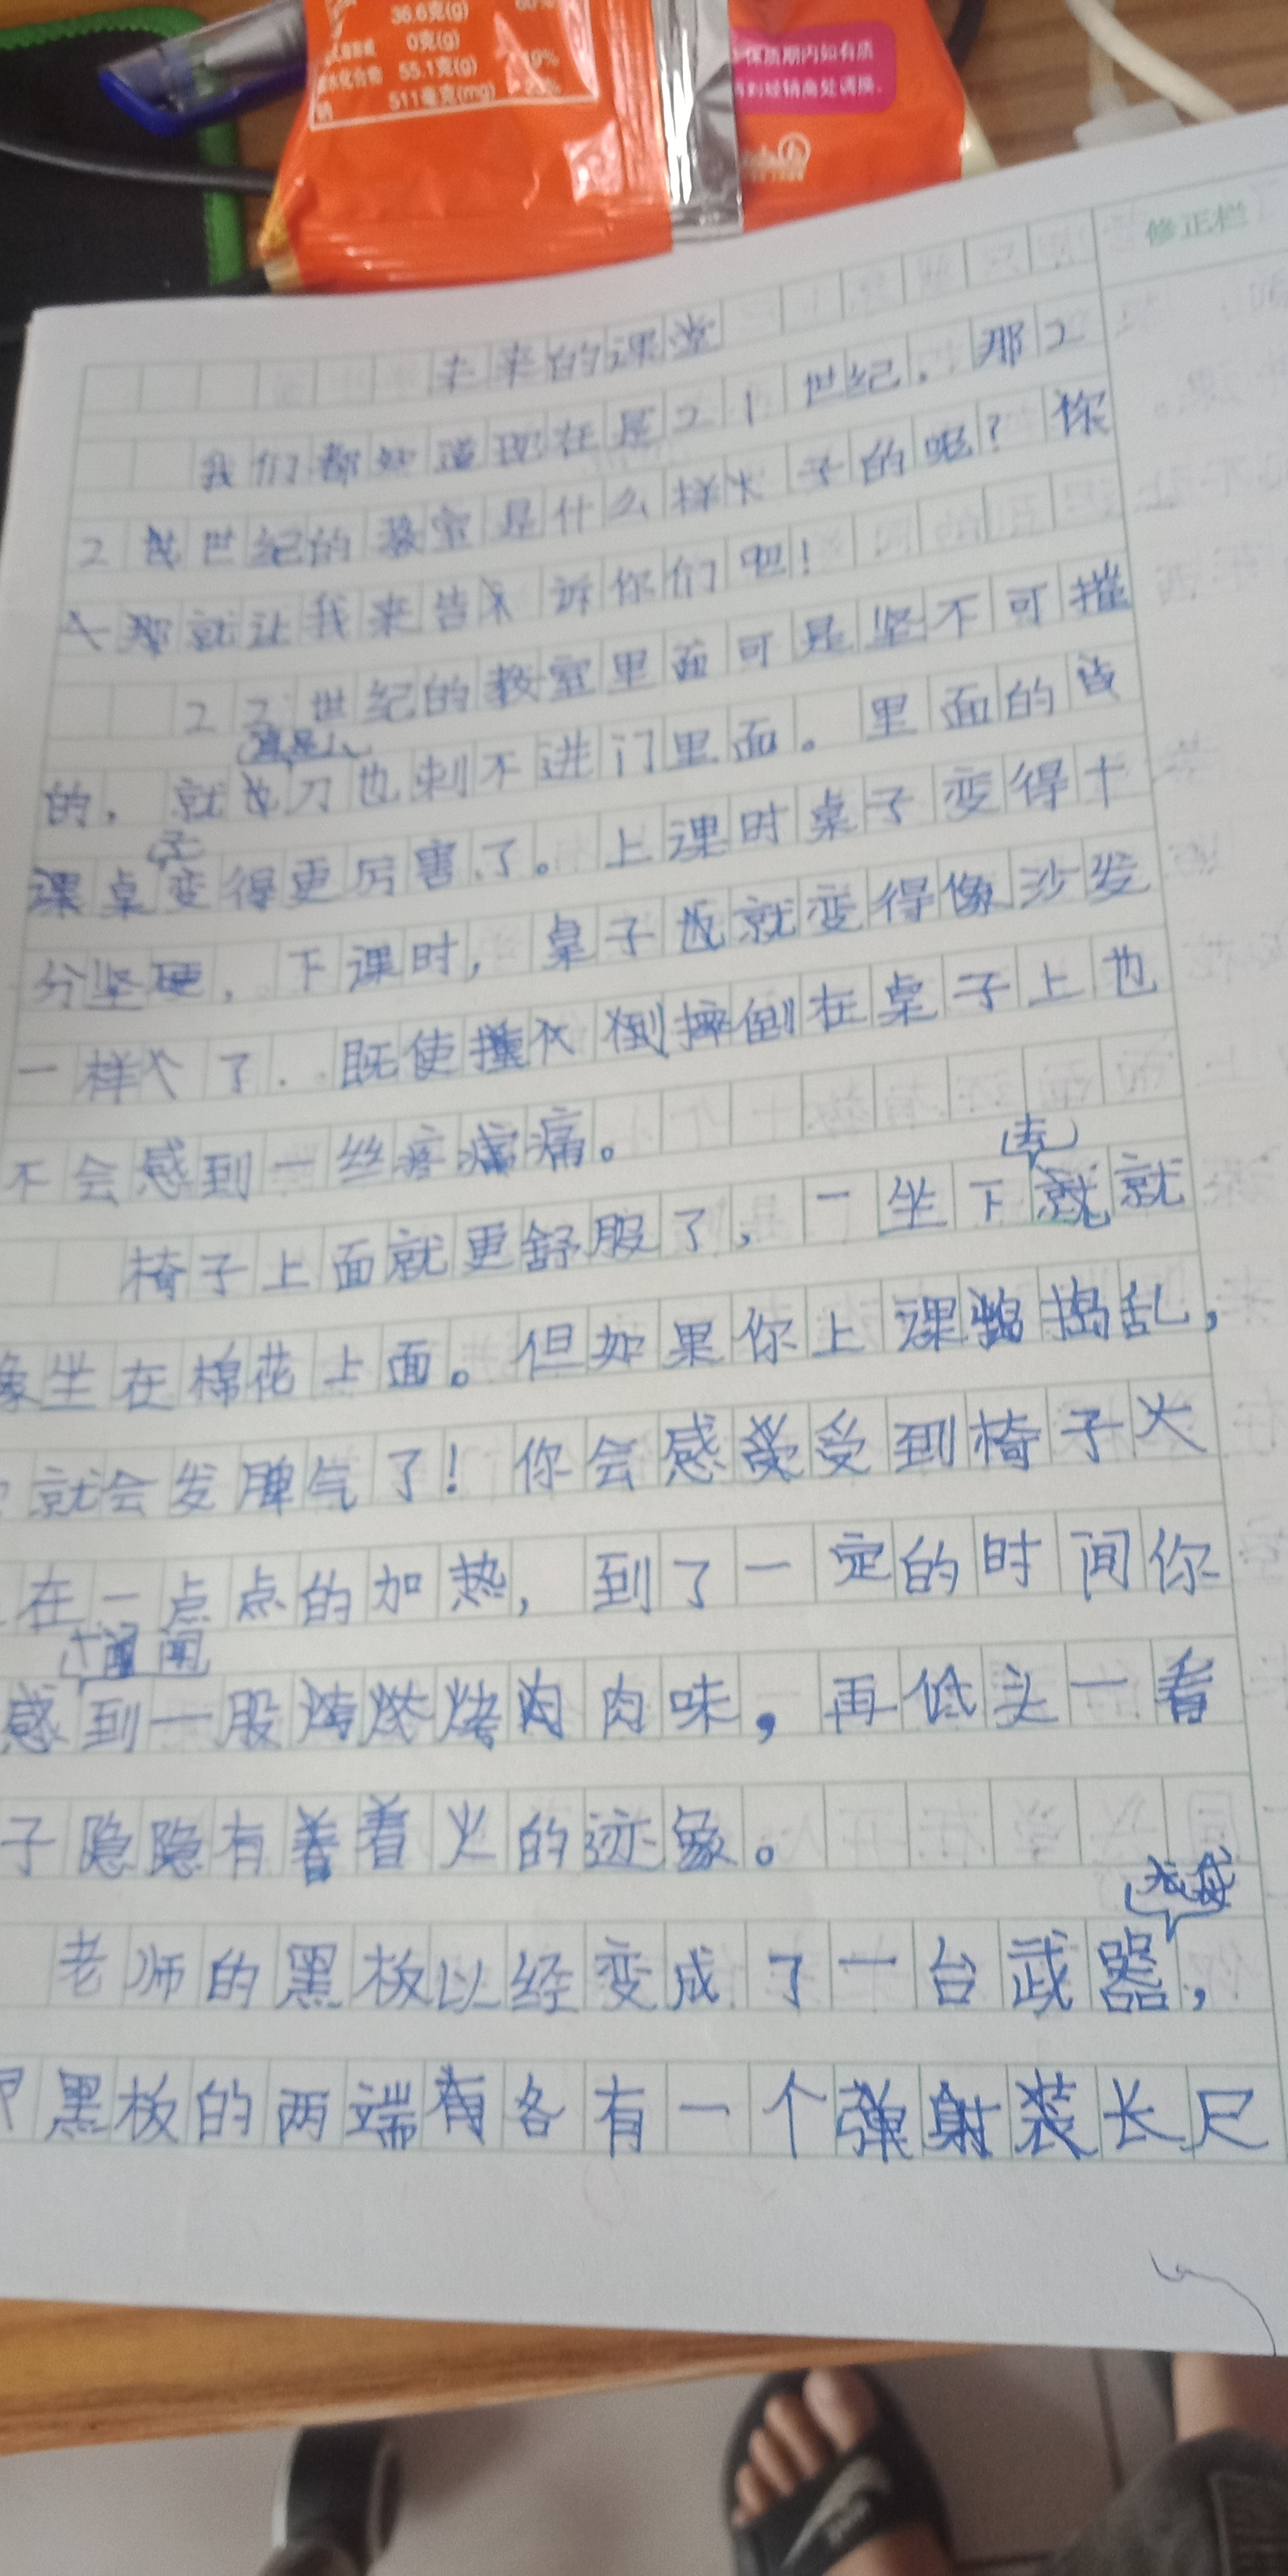 36.6克(g)
60%
0克(g)
水化合物 55.1克(g)
511毫克(mg)
保质期内如有质
经销商处调换.
修正栏
未来的课堂
我们都知道现在是21世纪.那2
2世纪的教室是什么样子的呢?你
那就让我来告诉你们吧!
22世纪的教室里面可是坚不可摧
的,就刀也刺不进门里面。里面的
课桌变得更厉害了。上课时桌子变得十
分坚硬,下课时,桌子就变得像沙发
一样了.既使摔倒在桌子上也
不会感到一丝疼痛。
去
椅子上面就更舒服了,一坐下就
象坐在棉花上面。但如果你上课捣乱,
就会发脾气了!你会感受到椅子火
在一点点的加热,到了一定的时间你
闻
感到一股烤肉味,再低头一看
子隐隐有着火的迹象。
老师的黑板以经变成了一台武器,
黑板的两端各有一个弹射装长尺